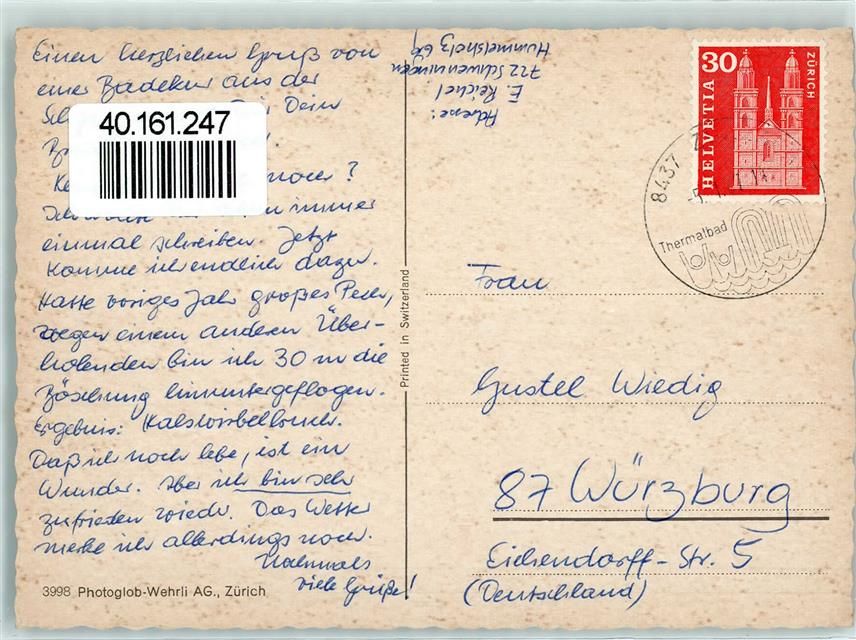 Einen herzlichen Gruß von
einer Badekur aus der
Dein
40.161.247
noch?
immer
einmal schreiben. Jetzt
komme ich endlich dazu.
Hatte voriges Jahr großes Pech,
wegen einem anderen Über-
holenden bin ich 30 m die
Böschung hinuntergeflogen.
Ergebnis: Halswirbelbruch.
Daß ich noch lebe, ist ein
Wunder. Aber ich bin sehr
zufrieden wieder. Das Wetter
merke ich allerdings noch.
Nochmals
viele Grüße!
3998 Photoglob-Wehrli AG., Zürich
Printed in Switzerland
Adresse:
E. Reichel
722 Schwenningen
Hummelsholz 69
30
HELVETIA
ZÜRICH
8437
Thermalbad
Frau
Gustel Wiedig
87 Würzburg
Eichendorff-Str. 5
(Deutschland)